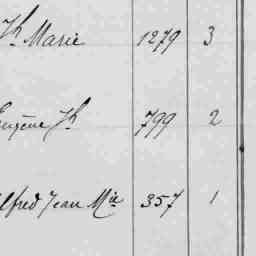 Jh Marie 1279 3
Eugène Jh 799 2
Alfred Jean Mie 357 1